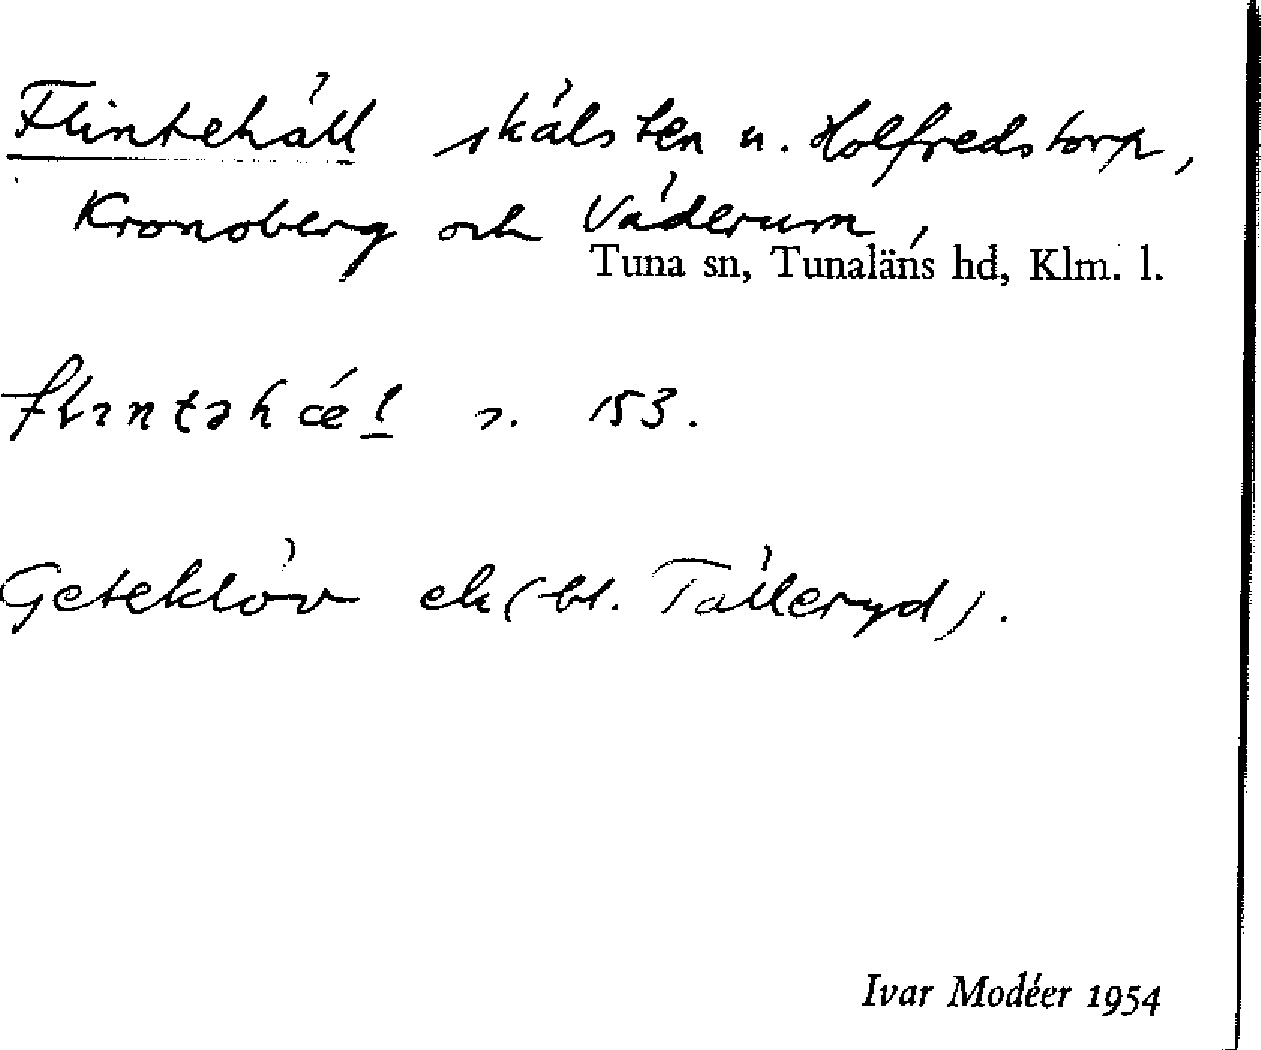 Flintehäll skålsten u. Holfredstorp,
Kronoberg och Väderum,
Tuna sn, Tunaläns hd, Klm. l.
s. 153.
Geteklöv ek (bl. Tälleryd).
Ivar Modéer 1954